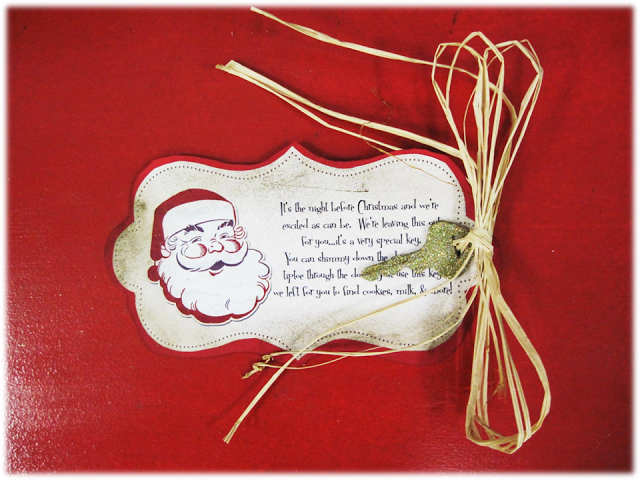 It's the night before Christmas and we're
excited as can be. We're leaving this out
for you...it's a very special key.
You can shimmy down the
tiptoe through the use this key
we left for you to find cookies, milk, & more!